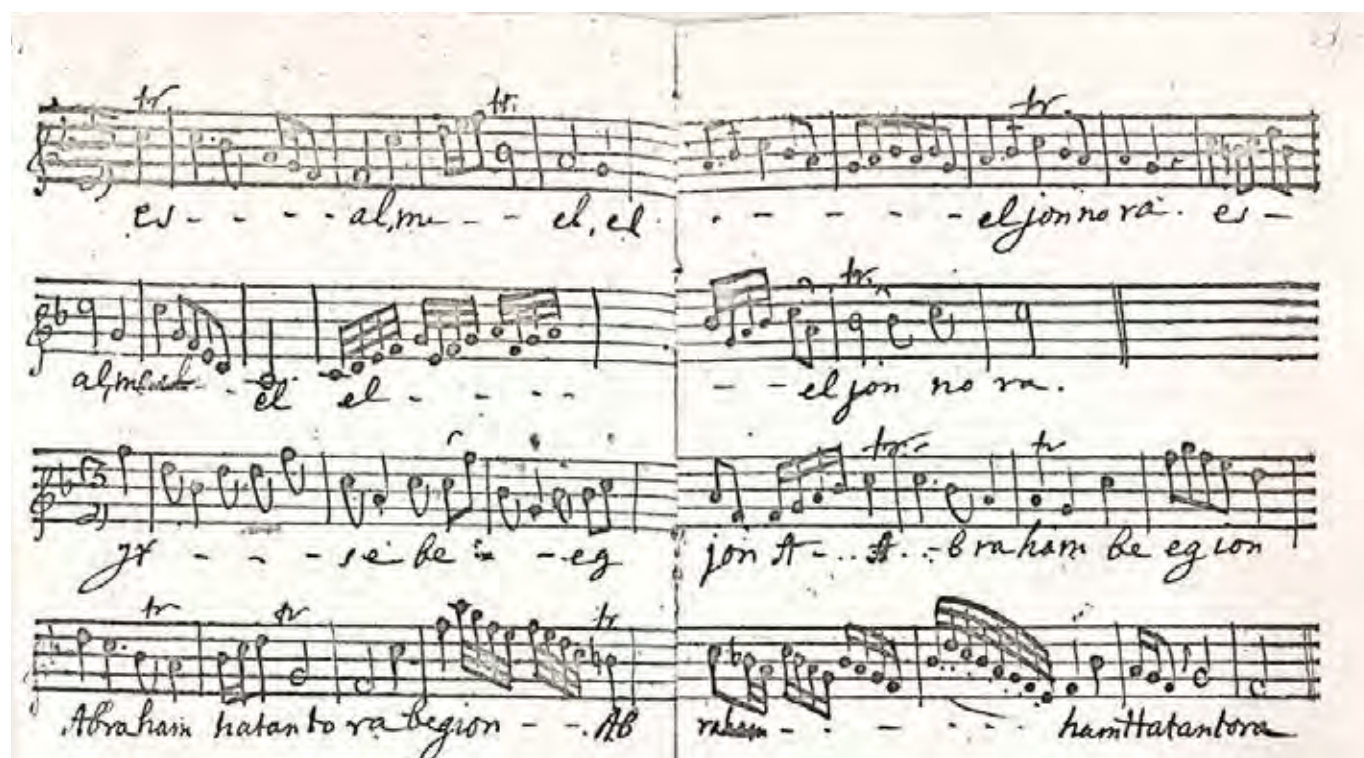 tr. tr. tr.
es - - - - al,me - - el, el - - - - - el jon no ra. es -
tr.
al,me - - el el - - - - - - el jon no ra.
tr. tr
- - - se be - - eg jon A - .. A .. - braham be egion
tr tr tr
Abraham hatantora begion - - . Ab raham - - - - - hamHatantora